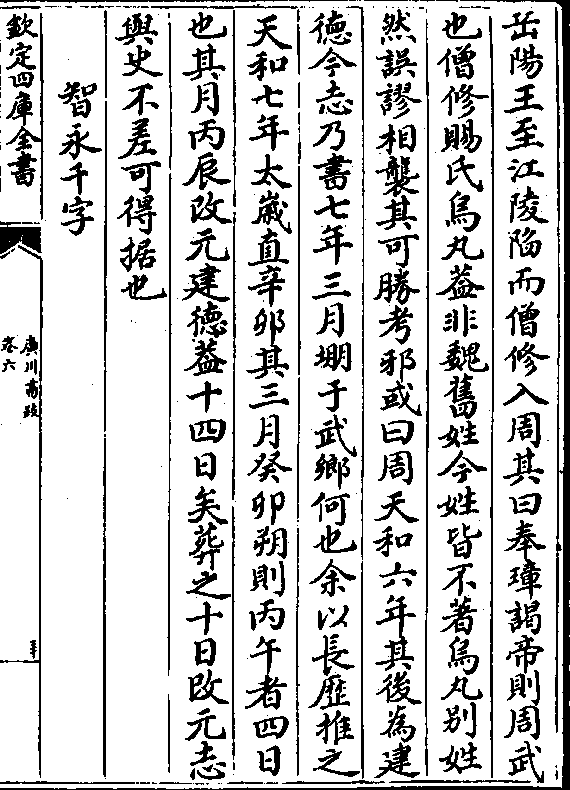 岳陽王至江陵陷而僧修入周其曰奉璋謁帝則周武
也僧修賜氏烏丸葢非魏舊姓今姓皆不著烏丸别姓
然誤謬相襲其可勝考邪或曰周天和六年其後為建
徳今志乃書七年三月堋于武鄉何也余以長歴推之
天和七年太歳直辛卯其三月癸卯朔則丙午者四日
也其月丙辰改元建德葢十四日矣葬之十日改元志
與史不差可得据也
智永千字
欽定四庫全書
廣川書跋
卷六